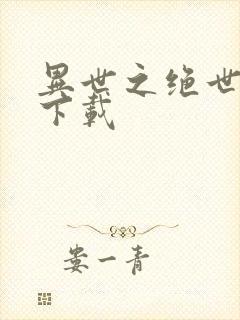 異世之绝世
下載
娄一青